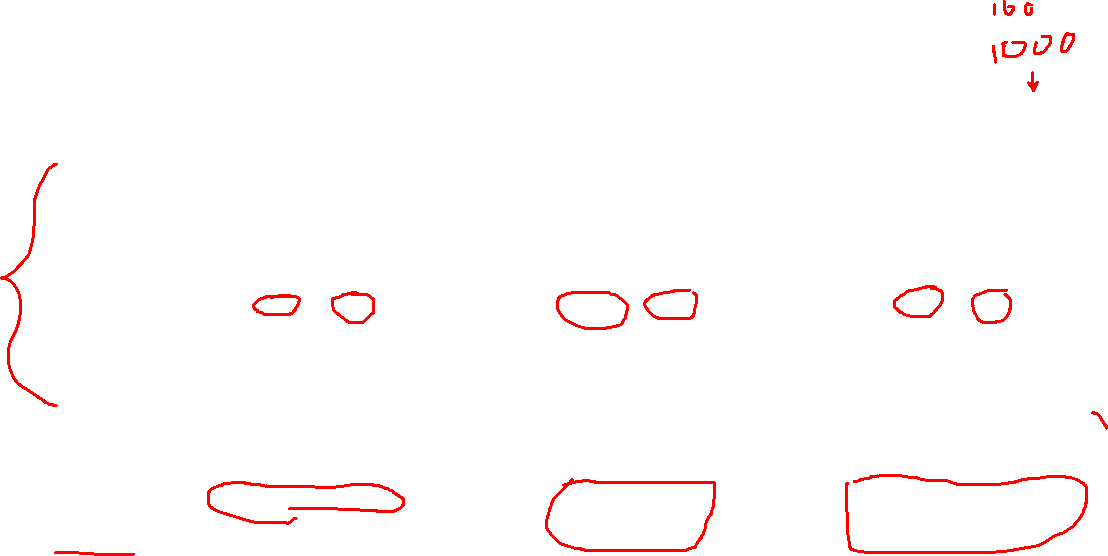 100
1000